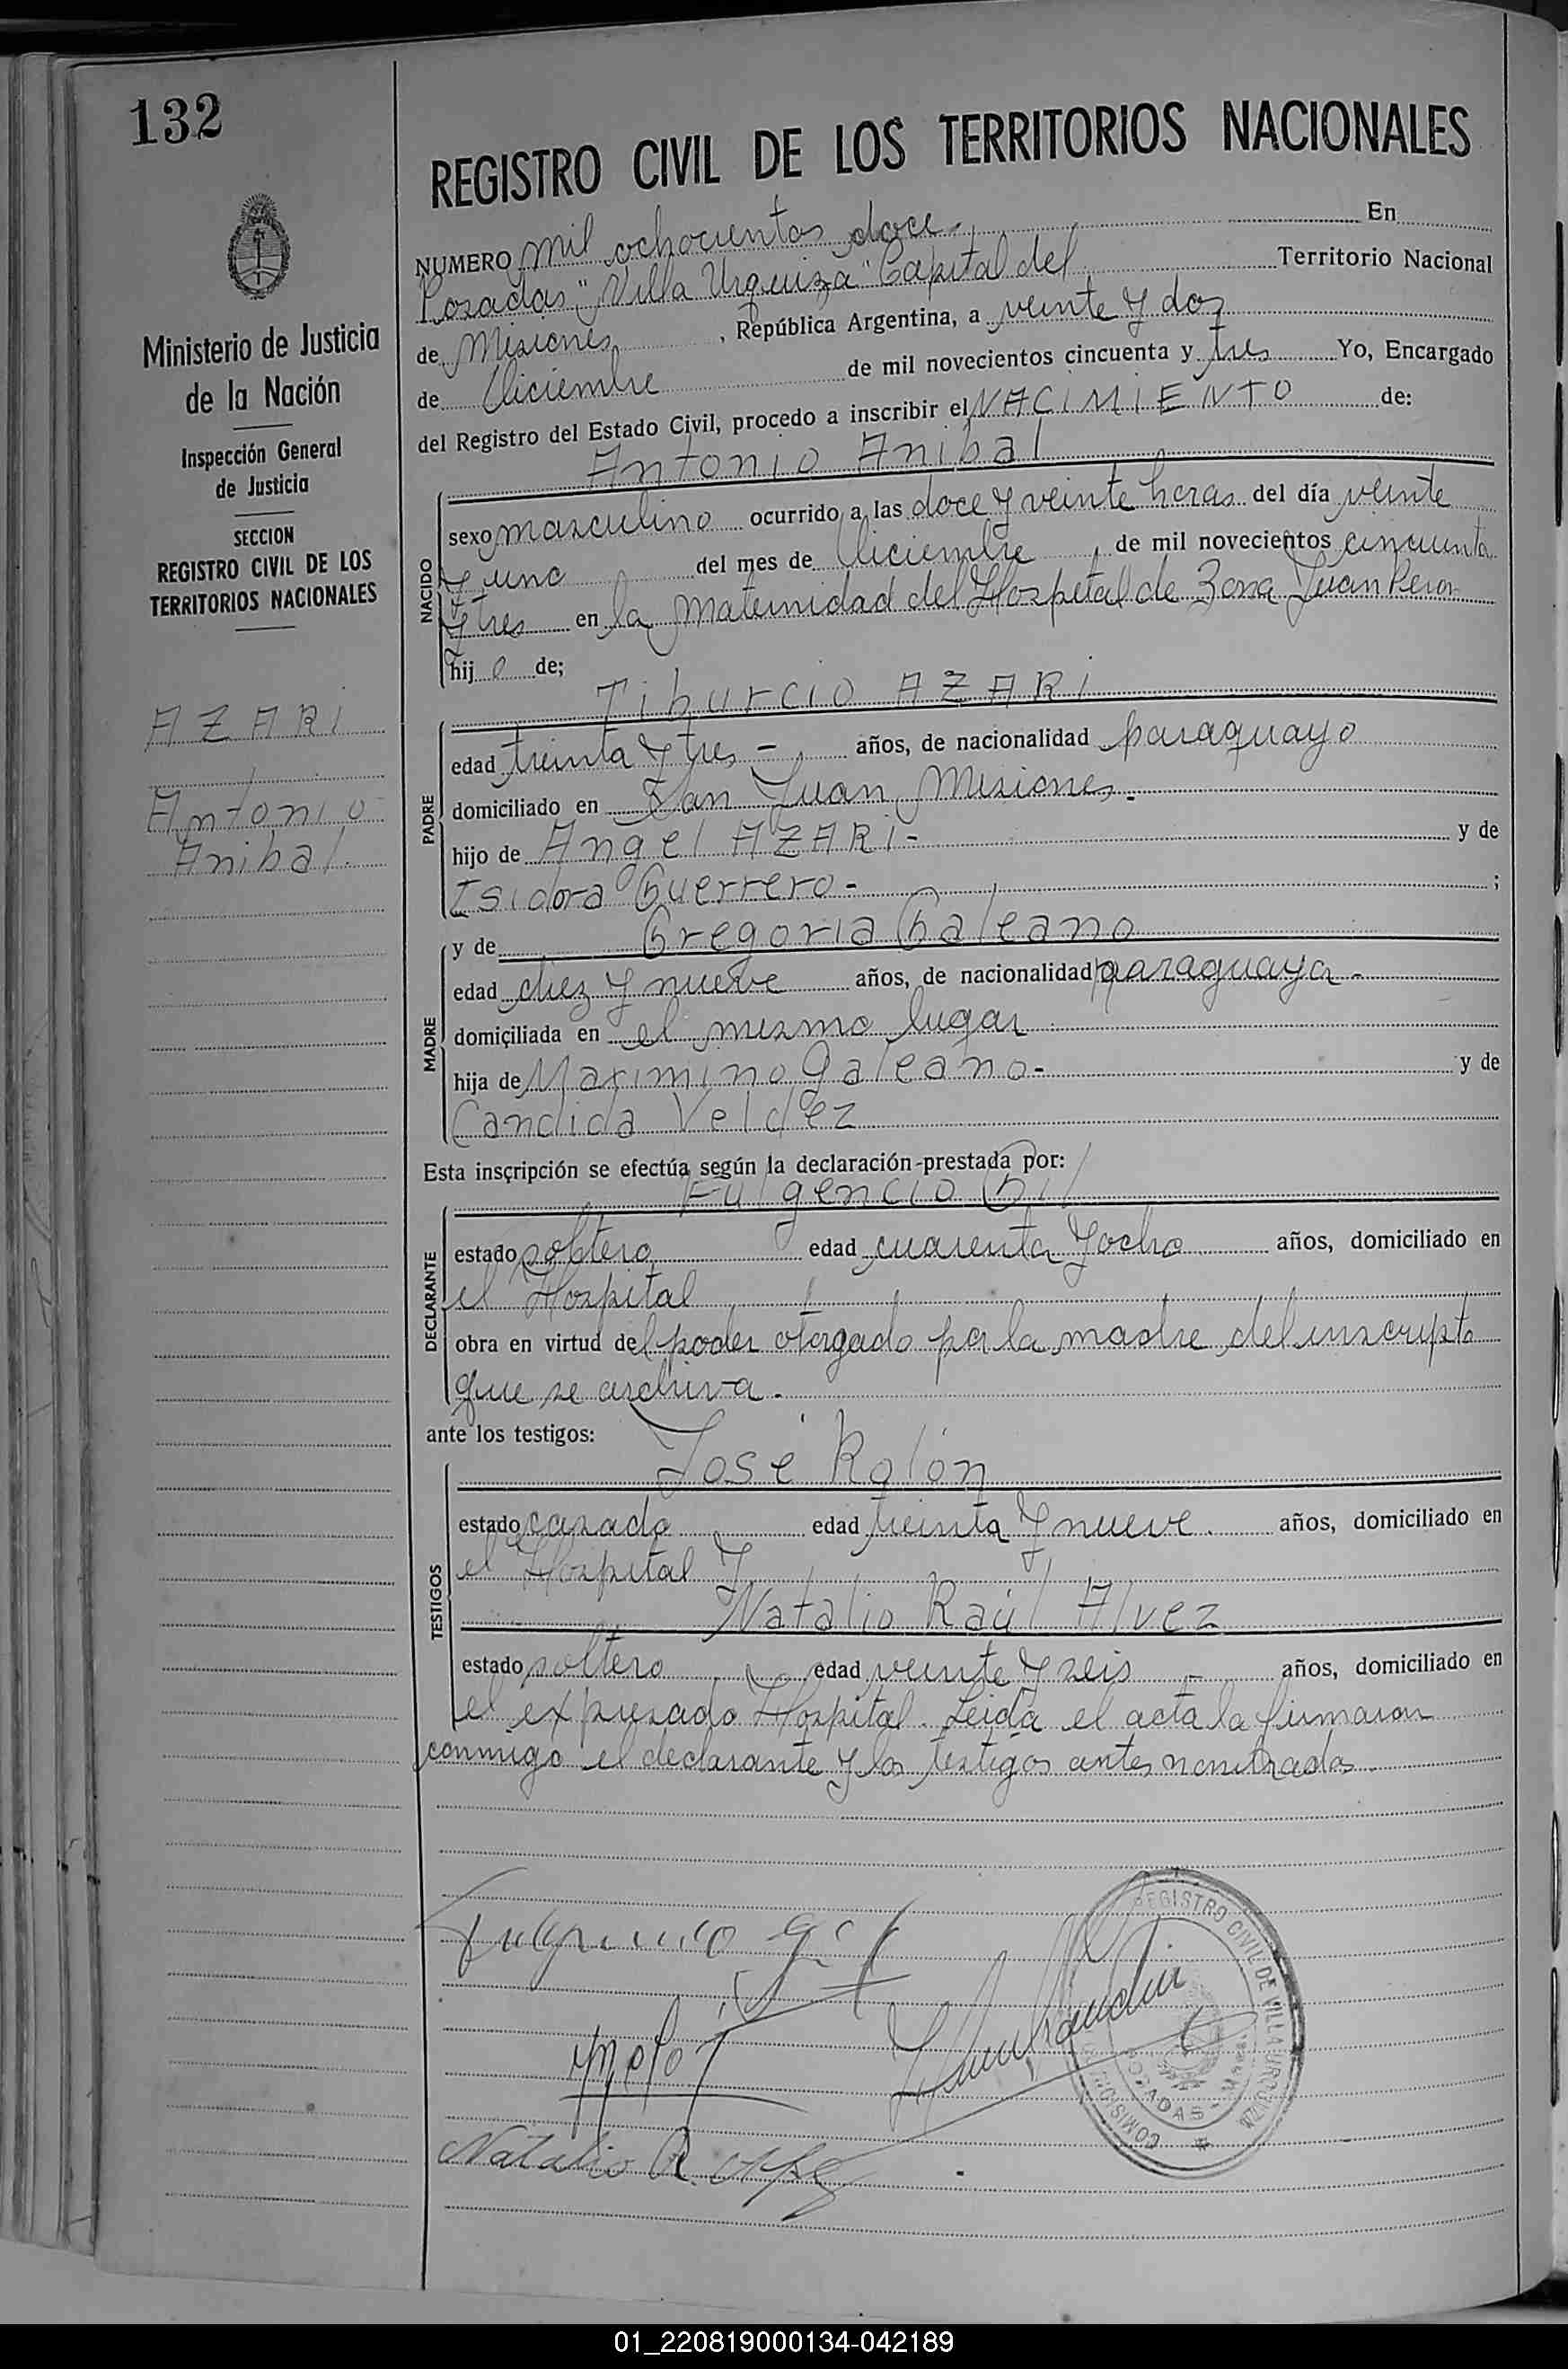 132
REGISTRO CIVIL DE LOS TERRITORIOS NACIONALES
Ministerio de Justicia
de la Nación
Inspección General
de Justicia
SECCION
REGISTRO CIVIL DE LOS
TERRITORIOS NACIONALES
AZARI
Antonio
Anibal.
NUMERO mil ochocientos doce. En
Posadas "Villa Urquiza" Capital del Territorio Nacional
de Misiones, República Argentina, a veinte y dos
de Diciembre de mil novecientos cincuenta y tres Yo, Encargado
del Registro del Estado Civil, procedo a inscribir el NACIMIENTO de:
Antonio Anibal
NACIDO
sexo masculino ocurrido a las doce y veinte horas del día veinte
y uno del mes de Diciembre, de mil novecientos cincuenta
y tres en la Maternidad del Hospital de Zona Juan Peron
hijo de;
Tiburcio AZARI
PADRE
edad treinta y tres - años, de nacionalidad paraguayo
domiciliado en San Juan, Misiones.
hijo de Angel AZARI- y de
Isidora Guerrero- ;
y de Gregoria Galeano
MADRE
edad diez y nueve años, de nacionalidad paraguaya -
domiciliada en el mismo lugar
hija de Maximino Galeano- y de
Candida Veldez
Esta inscripción se efectúa según la declaración prestada por:
Fulgencio Gil
DECLARANTE
estado soltero edad cuarenta y ocho años, domiciliado en
el Hospital
obra en virtud del poder otorgado por la madre del inscripto
que se archiva.
ante los testigos:
José Rolón
TESTIGOS
estado casado edad treinta y nueve años, domiciliado en
el Hospital y
Natalio Raúl Alvez
estado soltero edad veinte y seis - años, domiciliado en
el expresado Hospital. Leida el acta la firmaron
conmigo el declarante y los testigos antes nombrados.
Fulgencio Gil
REGISTRO CIVIL DE VILLA URQUIZA
POSADAS
Natalio R.
01_220819000134-042189